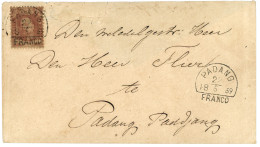 Den weledelgestr Heer
Den Heer Flier
te
Padang Pandjang
PADANG
2
18 5 69
FRANCO
FRANCO